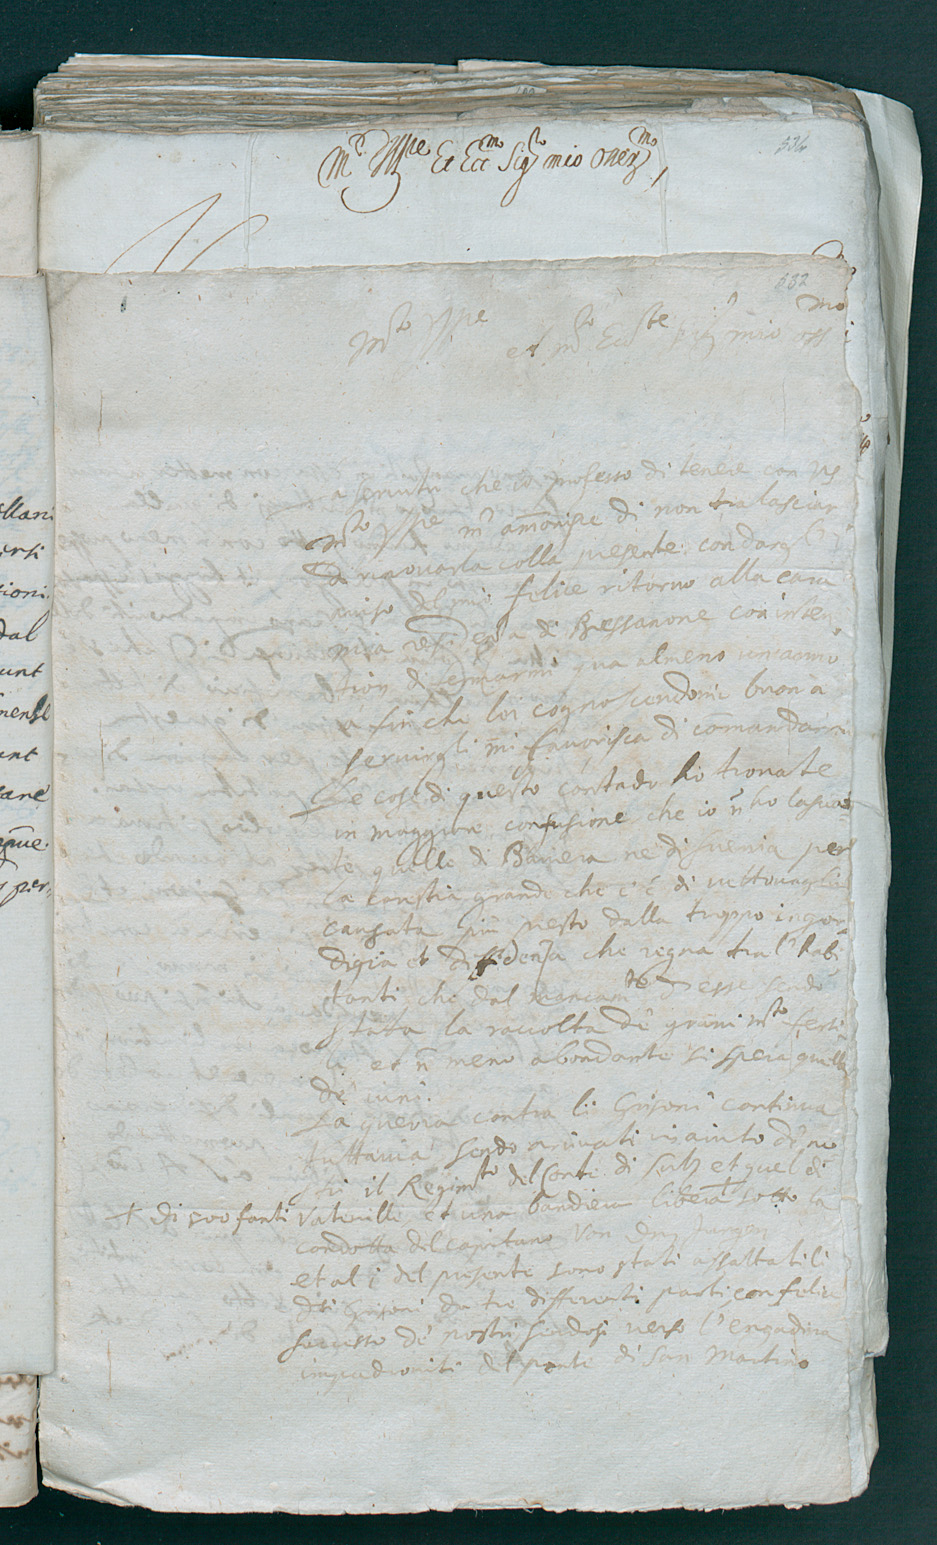 334
Mto Illre Et Ecc.mo Sigr mio oner.mo
532
Mto Illre
et mto Ecc.te Sigr mio oss.mo
llari
ersi
tioni.
dal
unt
nense
unt
ane
que.
per,
La seruitù che io professo di tenere con VS
Mto Illre m'amonisce di non tralasciar
di riuouarla colla presente, con darg
auiso del mio felice ritorno alla cara
mia resid.enza di Bressanone con inten
tion di fermarmi qua almeno un anno
a fin che lei cognoscendomi buon a
seruirgli mi fauorisca di comandarmi
Le cose di questo contado ho trouate
in maggior confusione che io ñ ho lascia
te quelle di Bauiera ne di Sueuia per
la carestia grande che c'è di uettouaglia
causata più presto dalla troppo ingor
digia et diffidenza che regna tra l'habi
tanti che dal mancam.to d'esse sendo
stata la raccolta de grani mto ferti
le et ñ meno abondante si spera quella
de uini.
La guerra contra li Grisoni continua
tuttauia sendo arriuati in aiuto de no
stri il Regim.to del Conte di Sulz et quel di
+ di 500 fanti
Vateuille et una bandiera libera + sotto la
condotta del capitano Von
et al i del presente sono stati assaltati li
dti Grisoni da tre differenti parti con felice
successo de nostri sendosi uerso l'engadina
impadroniti del ponte di San Martino